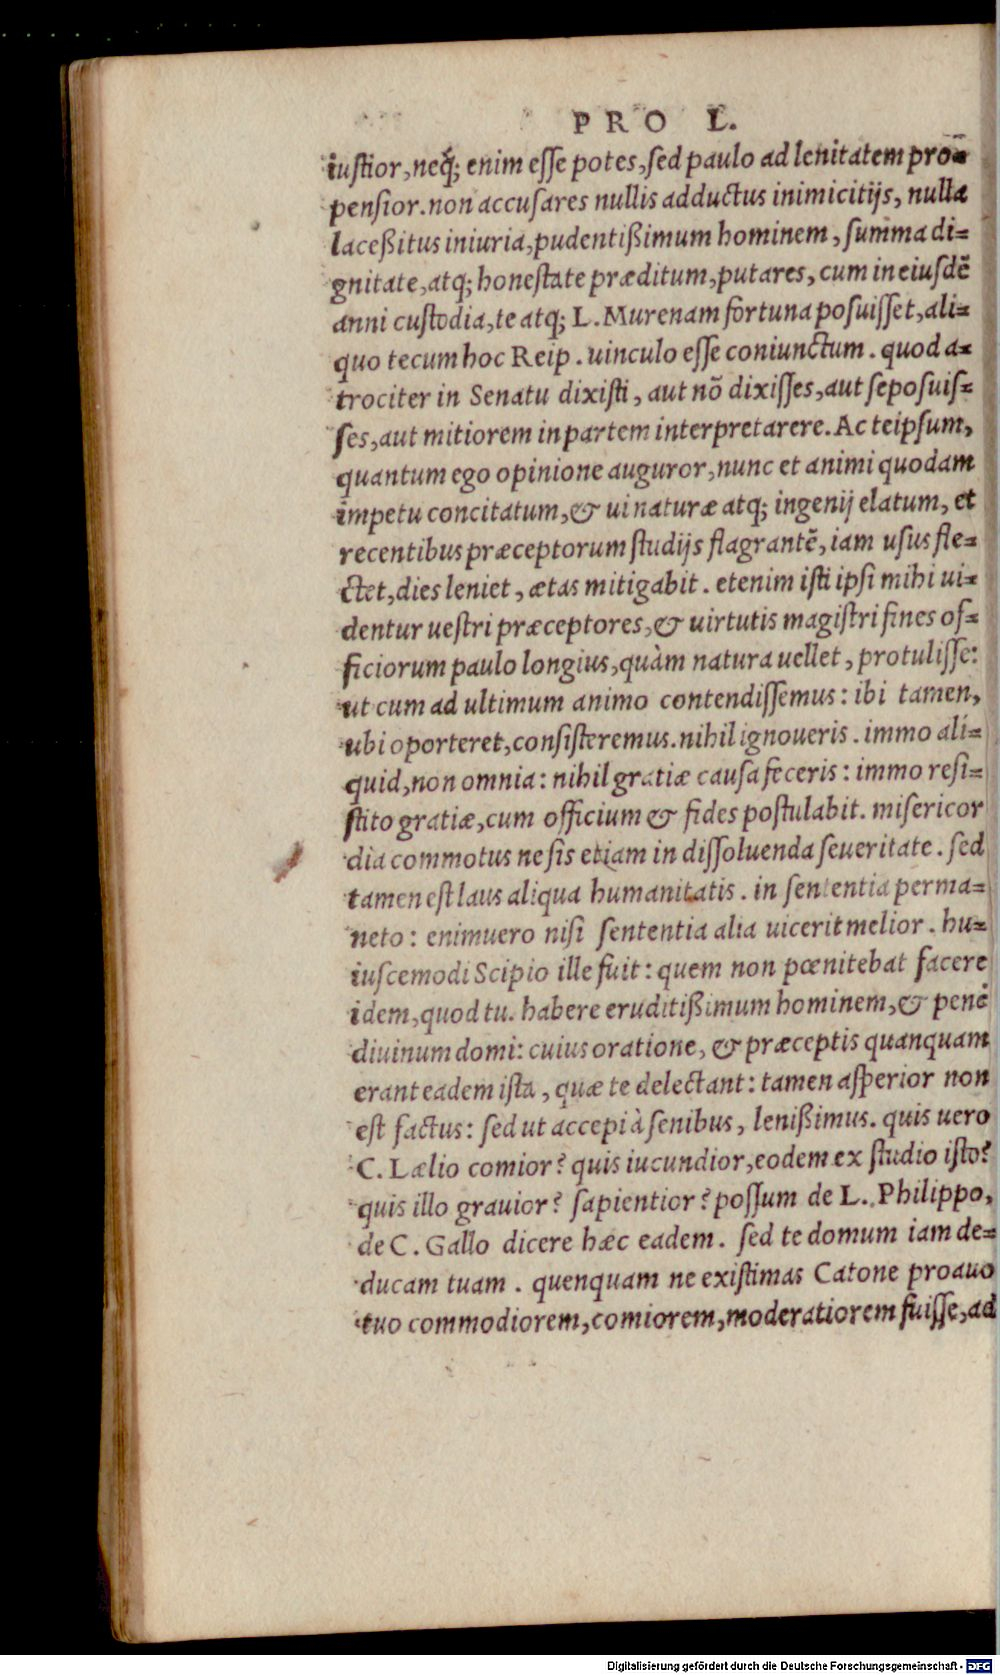 PRO L.
iustior, neq́; enim esse potes, sed paulo ad lenitatem pro=
pensior. non accusares nullis adductus inimicitijs, nulla
laceßitus iniuria, pudentißimum hominem, summa di=
gnitate, atq; honestate præditum, putares, cum in eiusdē
anni custodia, te atq; L. Murenam fortuna posuisset, ali=
quo tecum hoc Reip. uinculo esse coniunctum. quod a=
trociter in Senatu dixisti, aut nō dixisses, aut seposuis=
ses, aut mitiorem in partem interpretarere. Ac teipsum,
quantum ego opinione auguror, nunc et animi quodam
impetu concitatum, & ui naturæ atq; ingenij elatum, et
recentibus præceptorum studijs flagrantē, iam usus fle=
ctet, dies leniet, ætas mitigabit. etenim isti ipsi mihi ui=
dentur uestri præceptores, & uirtutis magistri fines of=
ficiorum paulo longius, quàm natura uellet, protulisse:
ut cum ad ultimum animo contendissemus: ibi tamen,
ubi oporteret, consisteremus. nihil ignoueris. immo ali=
quid, non omnia: nihil gratiæ causa feceris: immo resi=
stito gratiæ, cum officium & fides postulabit. misericor
dia commotus ne sis etiam in dissoluenda seueritate. sed
tamen est laus aliqua humanitatis. in sententia perma=
neto: enimuero nisi sententia alia uicerit melior. hu=
iuscemodi Scipio ille fuit: quem non pœnitebat facere
idem, quod tu. habere eruditißimum hominem, & penè
diuinum domi: cuius oratione, & præceptis quanquam
erant eadem ista, quæ te delectant: tamen asperior non
est factus: sed ut accepi à senibus, lenißimus. quis uero
C. Lælio comior? quis iucundior, eodem ex studio isto?
quis illo grauior? sapientior? possum de L. Philippo,
de C. Gallo dicere hæc eadem. sed te domum iam de=
ducam tuam. quenquam ne existimas Catone proauo
tuo commodiorem, comiorem, moderatiorem fuisse, ad
Digitalisierung gefördert durch die Deutsche Forschungsgemeinschaft - DFG